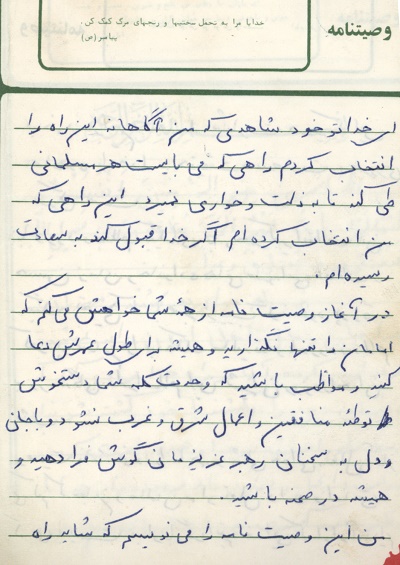 وصیتنامه
خدایا مرا به تحمل سختیها و رنجهای مرگ کمک کن.
پیامبر (ص)
ای خدا تو خود شاهدی که من آگاهانه این راه را
انتخاب کردم راهی که می بایست هر مسلمانی
طی کند تا به ذلت و خواری نمیرد. این راهی که
من انتخاب کرده ام اگر خدا قبول کند به سعادت
رسیده ام.
در آغاز وصیت نامه از همهٔ شما خواهش می کنم که
امامان را تنها نگذارید و همیشه برای طول عمرش دعا
کنید و مواظب باشید که وحدت کلمه شما دستخوش
توطئه منافقین و اعمال شرق و غرب نشود و با جانی
و دل به سخنان رهبر عزیزمان گوش فرا دهید و
همیشه در صحنه باشید.
من این وصیت نامه را می نویسم که شاید راه